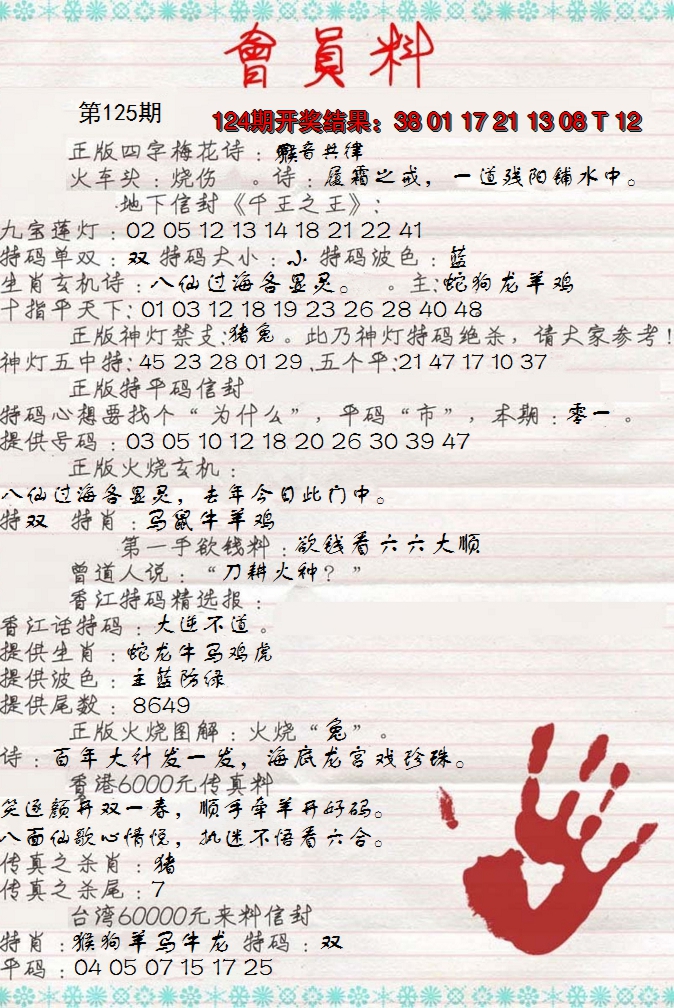 會員料
第125期
124期开奖结果：38 01 17 21 13 08 T 12
正版四字梅花诗：猴音共律
火车头：烧伤 。诗：履霜之戒，一道残阳铺水中。
地下信封《千王之王》：
九宝莲灯：02 05 12 13 14 18 21 22 41
特码单双：双 特码大小：小 特码波色：蓝
生肖玄机诗：八仙过海各显灵。 。主:蛇狗龙羊鸡
十指平天下: 01 03 12 18 19 23 26 28 40 48
正版神灯禁支:猪兔。此乃神灯特码绝杀，请大家参考!
神灯五中特: 45 23 28 01 29 .五个平:21 47 17 10 37
正版特平码信封
特码心想要找个“为什么”，平码“市”，本期：零一 。
提供号码：03 05 10 12 18 20 26 30 39 47
正版火烧玄机：
八仙过海各显灵，去年今日此门中。
特双 特肖：马鼠牛羊鸡
第一手欲钱料：欲钱看六六大顺
曾道人说：“刀耕火种？”
香江特码精选报：
香江话特码：大逆不道。
提供生肖：蛇龙牛马鸡虎
提供波色：主蓝防绿
提供尾数：8649
正版火烧图解：火烧“兔”。
诗：百年大计发一发，海底龙宫戏珍珠。
香港6000元传真料
笑逐颜开双一春，顺手牵羊开好码。
八面仙歌心情悦，执迷不悟看六合。
传真之杀肖：猪
传真之杀尾：7
台湾60000元来料信封
特肖：猴狗羊马牛龙 特码：双
平码：04 05 07 15 17 25